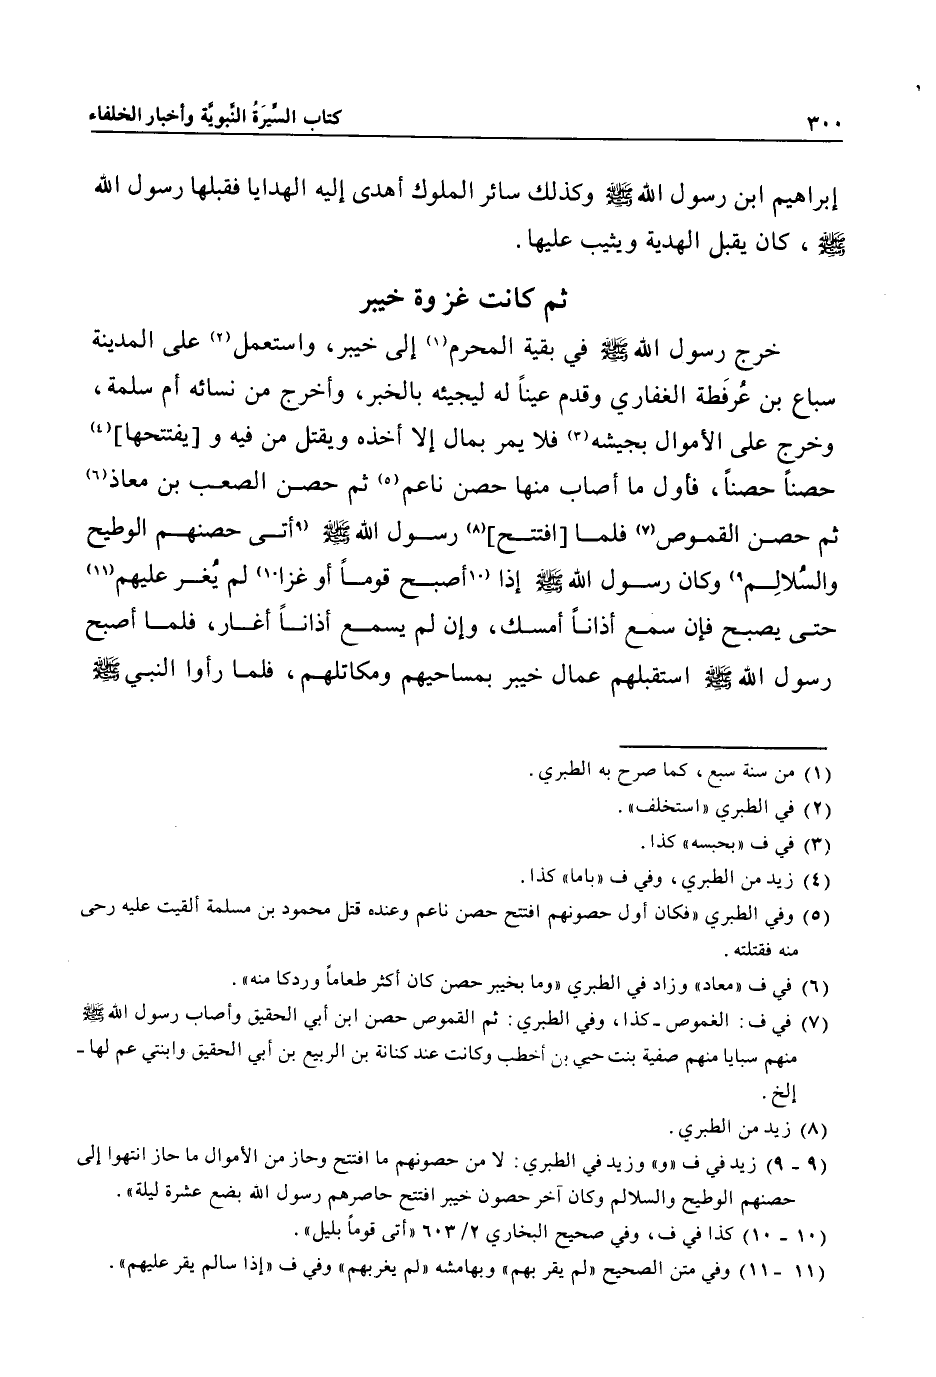 ٣٠٠ كتاب السِّيرَةُ النَّبويَّة وأخبار الخلفاء
إبراهيم ابن رسول الله ﷺ وكذلك سائر الملوك أهدى إليه الهدايا فقبلها رسول الله
ﷺ ، كان يقبل الهدية ويثيب عليها .
ثم كانت غزوة خيبر
خرج رسول الله ﷺ في بقية المحرم(١) إلى خيبر، واستعمل(٢) على المدينة
سباع بن عُرفَطة الغفاري وقدم عيناً له ليجيئه بالخبر، وأخرج من نسائه أم سلمة،
وخرج على الأموال بجيشه(٣) فلا يمر بمال إلا أخذه ويقتل من فيه و [يفتتحها](٤)
حصناً حصناً، فأول ما أصاب منها حصن ناعم(٥) ثم حصن الصعب بن معاذ(٦)
ثم حصن القموص(٧) فلما [افتتح](٨) رسول الله ﷺ (٩أتى حصنهم الوطيح
والسُلالِم٩) وكان رسول الله ﷺ إذا (١٠أصبح قوماً أو غزا١٠) لم يُغر عليهم(١١)
حتى يصبح فإن سمع أذاناً أمسك، وإن لم يسمع أذاناً أغار، فلما أصبح
رسول الله ﷺ استقبلهم عمال خيبر بمساحيهم ومكاتلهم، فلما رأوا النبي ﷺ
(١) من سنة سبع، كما صرح به الطبري .
(٢) في الطبري «استخلف» .
(٣) في ف «بحبسه» كذا .
(٤) زيد من الطبري، وفي ف «باما» كذا .
(٥) وفي الطبري «فكان أول حصونهم افتتح حصن ناعم وعنده قتل محمود بن مسلمة ألقيت عليه رحى
منه فقتلته .
(٦) في ف «معاد» وزاد في الطبري «وما بخيبر حصن كان أكثر طعاماً وردكا منه» .
(٧) في ف: الغموص ـ كذا، وفي الطبري: ثم القموص حصن ابن أبي الحقيق وأصاب رسول الله ﷺ
منهم سبايا منهم صفية بنت حيي بن أخطب وكانت عند كنانة بن الربيع بن أبي الحقيق وابنتي عم لها ـ
إلخ .
(٨) زيد من الطبري .
(٩ ـ ٩) زيد في ف «و» وزيد في الطبري: لا من حصونهم ما افتتح وحاز من الأموال ما حاز انتهوا إلى
حصنهم الوطيح والسلالم وكان آخر حصون خيبر افتتح حاصرهم رسول الله بضع عشرة ليلة» .
(١٠ ـ ١٠) كذا في ف، وفي صحيح البخاري ٢/ ٦٠٣ «أتى قوماً بليل» .
(١١ ـ ١١) وفي متن الصحيح «لم يقر بهم» وبهامشه «لم يغربهم» وفي ف «إذا سالم يقر عليهم» .